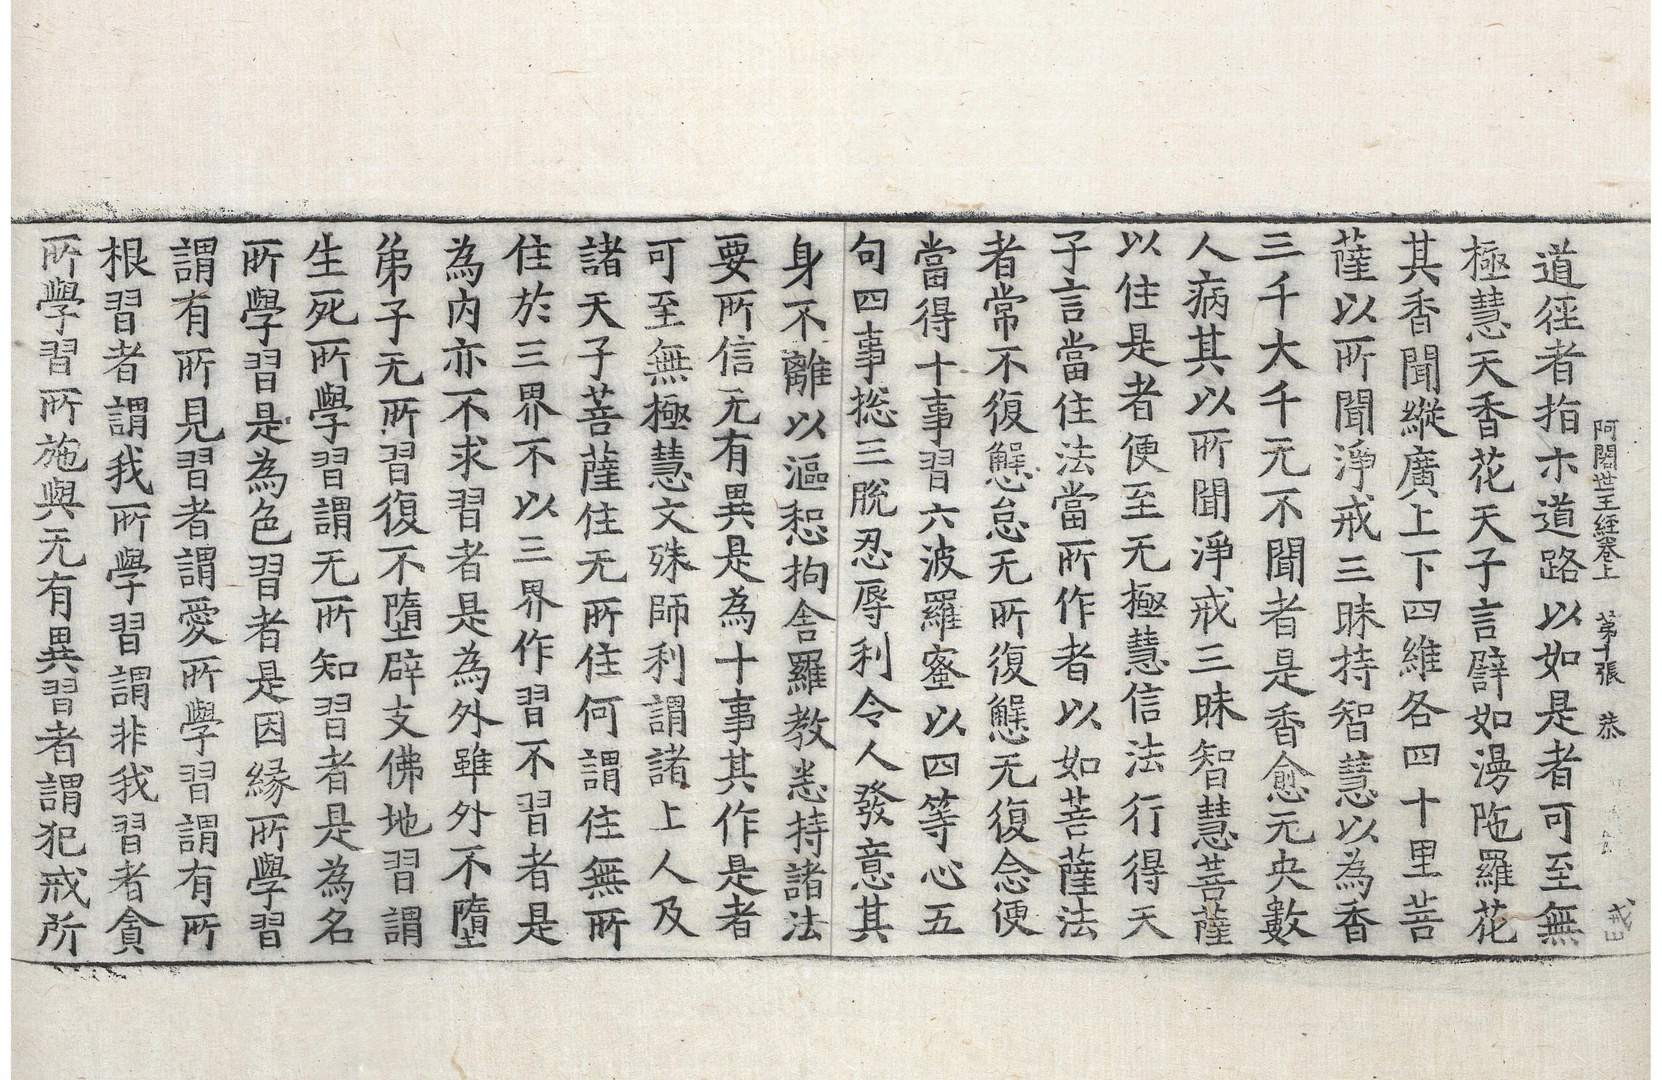 阿闍世王経巻上 第十張 恭
道徑者指示道路以如是者可至無
極慧天香花天子言譬如漫陁羅花
其香聞縱廣上下四維各四十里菩
薩以所聞淨戒三昧持智慧以為香
三千大千无不聞者是香愈无央數
人病其以所聞淨戒三昧智慧菩薩
以住是者便至无極慧信法行得天
子言當住法當所作者以如菩薩法
者常不復懈怠无所復懈怠无復念便
當得十事習六波羅蜜以四等心五
句四事揔三脫忍辱利令人發意其
身不離以漚惒拘舍羅教恙持諸法
要所信无有異是為十事其作是者
可至無極慧文殊師利謂諸上人及
諸天子菩薩住无所住何謂住無所
住於三界不以三界作習不習者是
為內亦不求習者是為外雖外不墮
弟子无所習復不墮辟支佛地習謂
生死所學習謂无所知習者是為名
所學習是為色習者是因緣所學習
謂有所見習者謂愛所學習謂有所
根習者謂我所學習謂非我習者貪
所學習所施與无有異習者謂犯戒所